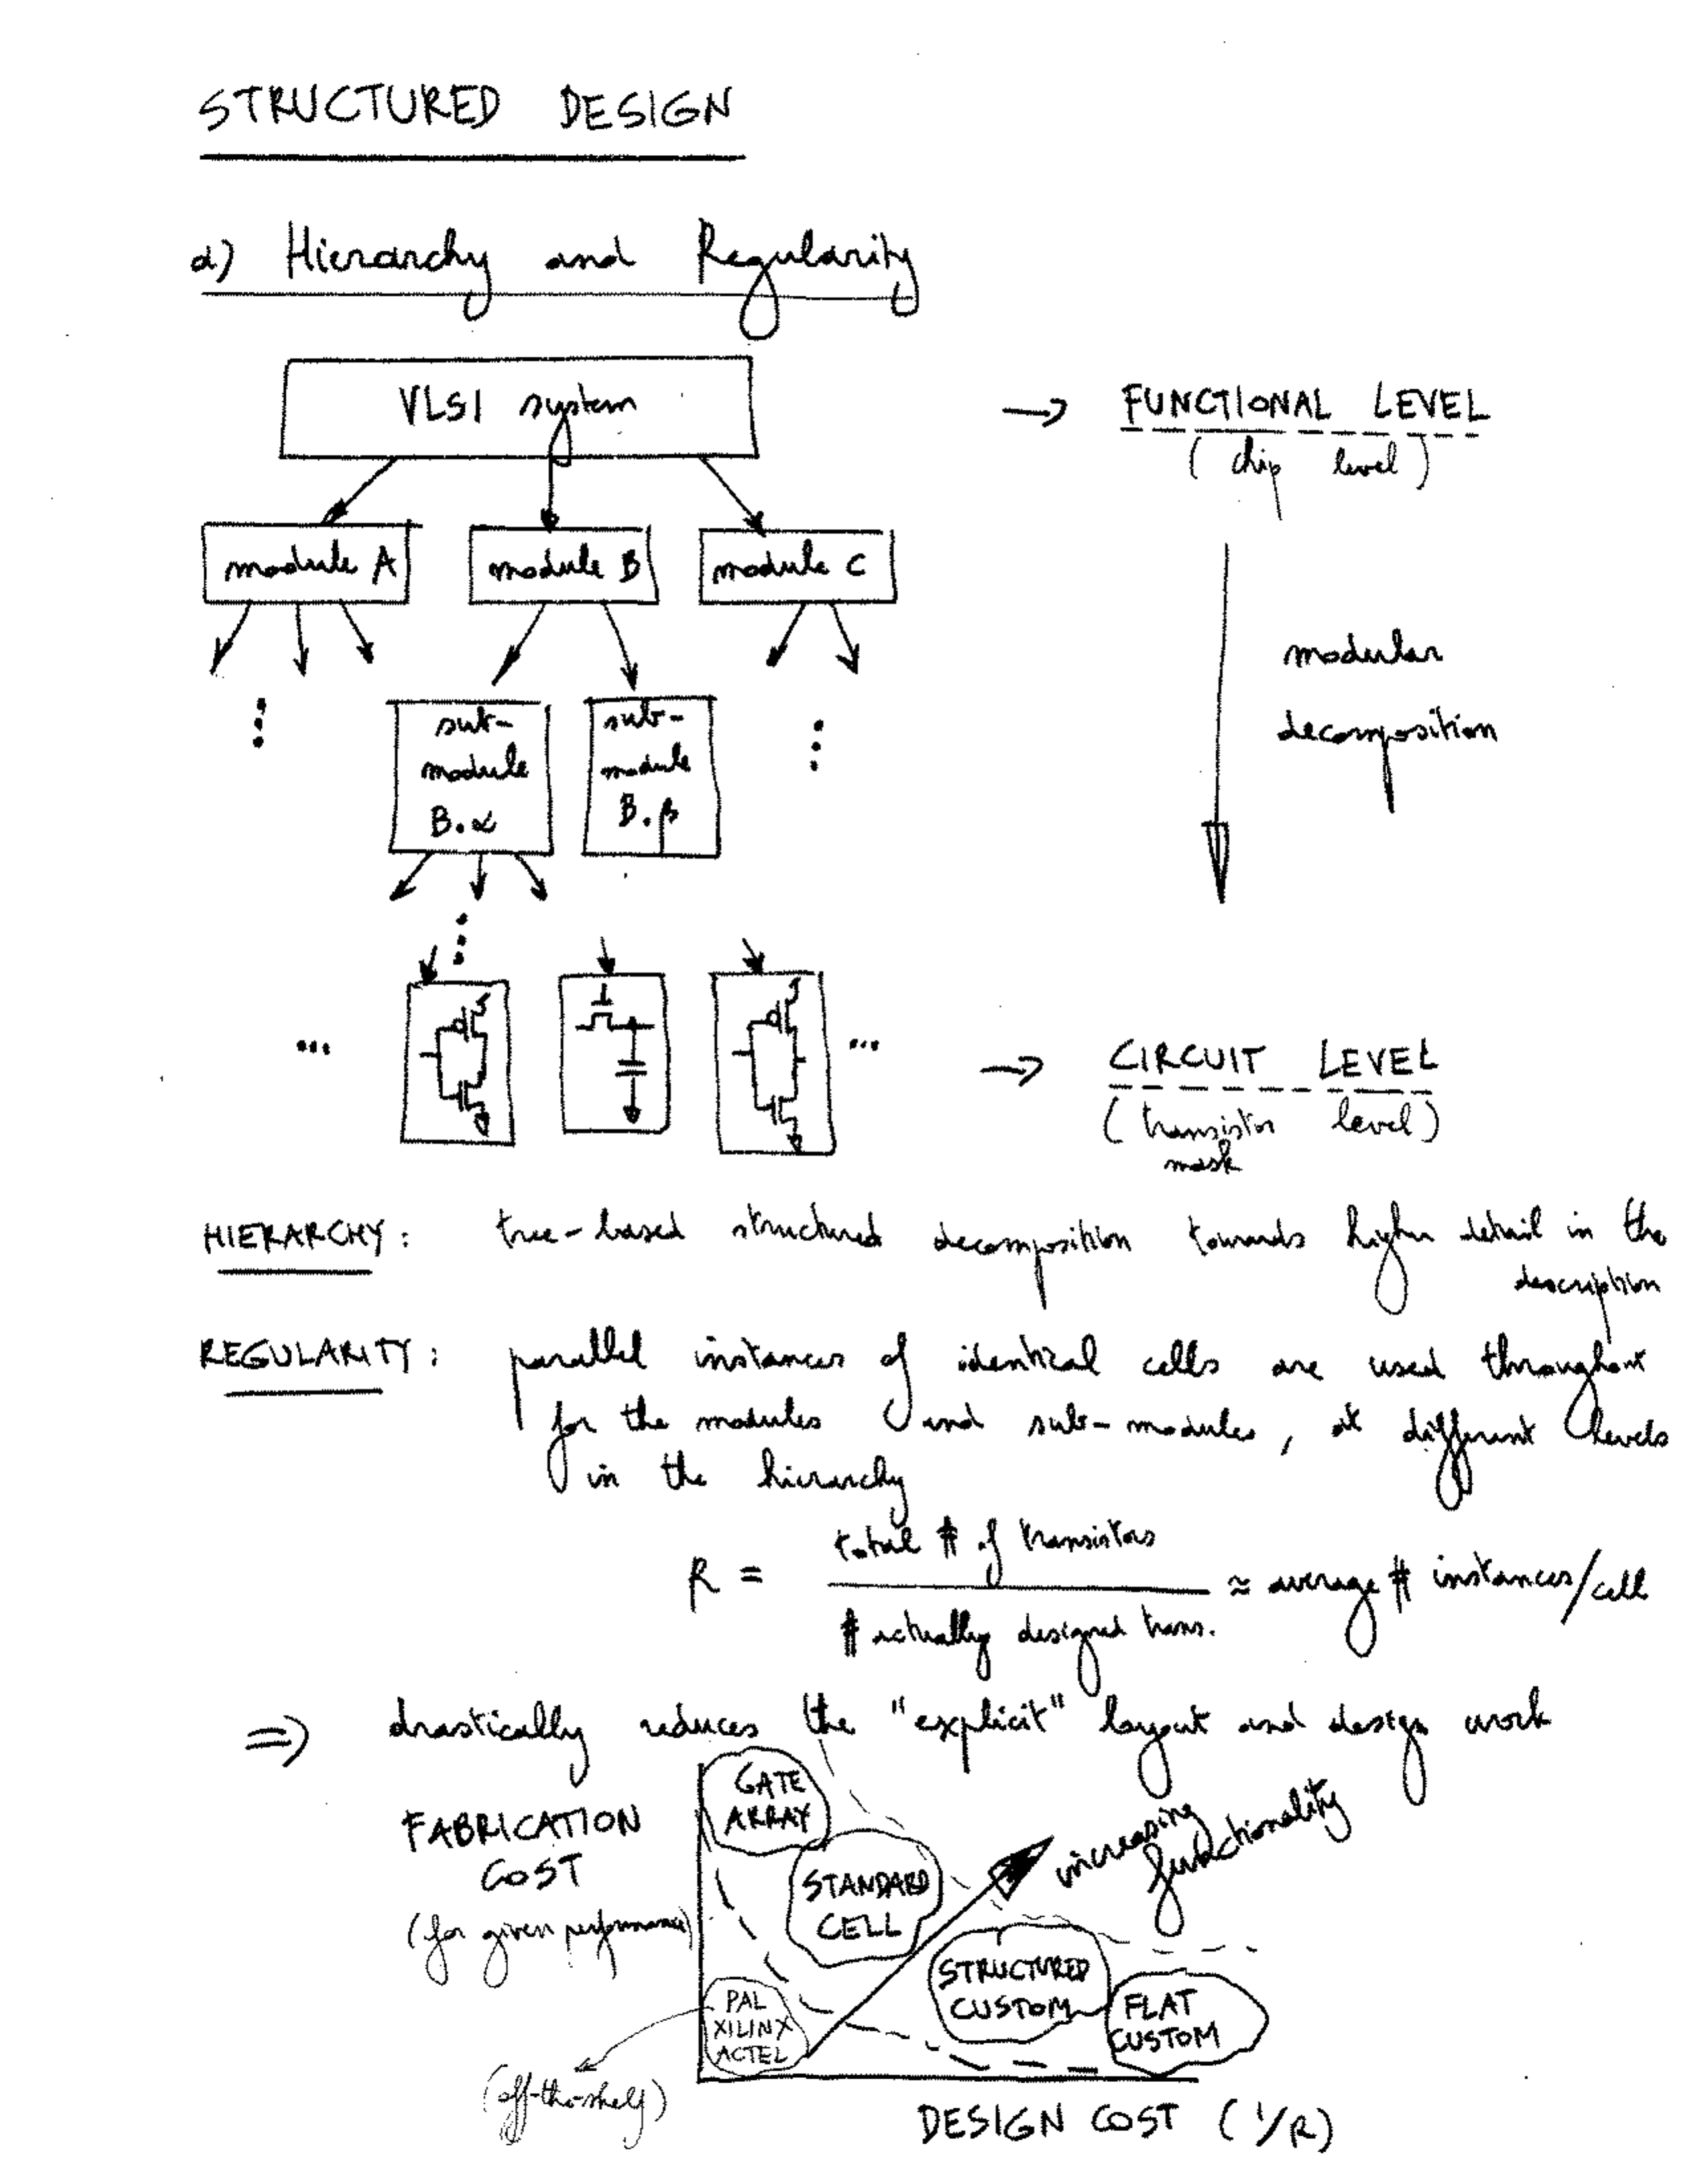 STRUCTURED DESIGN
a) Hierarchy and Regularity
VLSI system
→ FUNCTIONAL LEVEL
(chip level)
module A
module B
module C
modular
decomposition
sub-
module
B.α
sub-
module
B.β
→ CIRCUIT LEVEL
(transistor level)
mask
HIERARCHY: tree-based structured decomposition towards higher detail in the
description
REGULARITY: parallel instances of identical cells are used throughout
for the modules and sub-modules, at different levels
in the hierarchy
R = total # of transistors / # actually designed trans. ≈ average # instances/cell
⇒ drastically reduces the "explicit" layout and design work
FABRICATION
COST
(for given performance)
GATE
ARRAY
STANDARD
CELL
increasing
functionality
STRUCTURED
CUSTOM
FLAT
CUSTOM
PAL
XILINX
ACTEL
(off-the-shelf)
DESIGN COST (1/R)